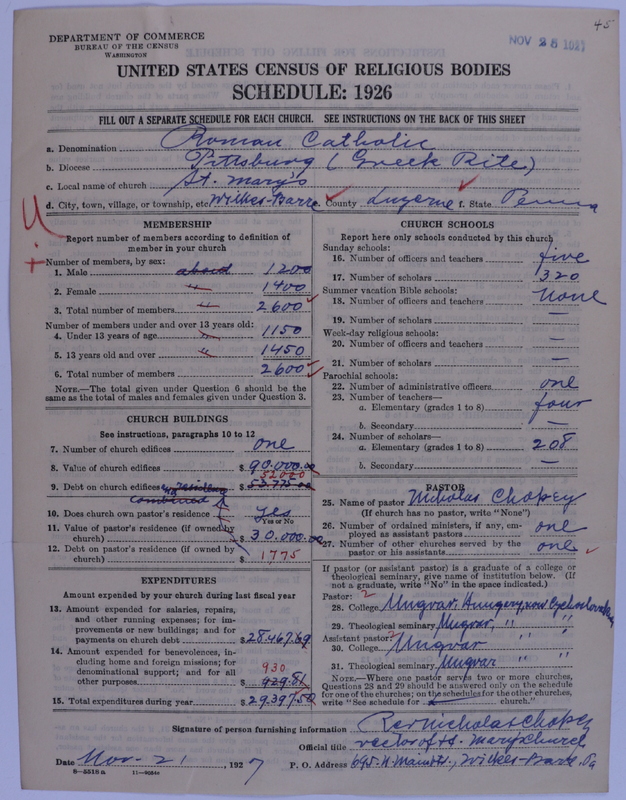 45
NOV 28 1927
DEPARTMENT OF COMMERCE
BUREAU OF THE CENSUS
WASHINGTON
UNITED STATES CENSUS OF RELIGIOUS BODIES
SCHEDULE: 1926
FILL OUT A SEPARATE SCHEDULE FOR EACH CHURCH. SEE INSTRUCTIONS ON THE BACK OF THIS SHEET
a. Denomination Roman Catholic
b. Diocese Pittsburg (Greek Rite)
c. Local name of church St. Mary's
d. City, town, village, or township, etc. Wilkes-Barre County Luzerne f. State Penna
MEMBERSHIP
Report number of members according to definition of
member in your church
Number of members, by sex:
1. Male about 1200
2. Female " 1400
3. Total number of members " 2600
Number of members under and over 13 years old:
4. Under 13 years of age " 1150
5. 13 years old and over " 1450
6. Total number of members 2600
NOTE.—The total given under Question 6 should be the
same as the total of males and females given under Question 3.
CHURCH BUILDINGS
See instructions, paragraphs 10 to 12
7. Number of church edifices one
8. Value of church edifices $ 90.000.00
52000
9. Debt on church edifices $ 53.775.00
combined
10. Does church own pastor's residence yes
Yes or No
11. Value of pastor's residence (if owned by
church) $ 30.000.00
12. Debt on pastor's residence (if owned by
church) $ 1775
EXPENDITURES
Amount expended by your church during last fiscal year
13. Amount expended for salaries, repairs,
and other running expenses; for im-
provements or new buildings; and for
payments on church debt $ 28.467.69
14. Amount expended for benevolences, in-
cluding home and foreign missions; for
denominational support; and for all 930
other purposes $ 929.81
15. Total expenditures during year $ 29.397.50
CHURCH SCHOOLS
Report here only schools conducted by this church
Sunday schools:
16. Number of officers and teachers five
17. Number of scholars 320
Summer vacation Bible schools:
18. Number of officers and teachers None
19. Number of scholars —
Week-day religious schools:
20. Number of officers and teachers —
21. Number of scholars —
Parochial schools:
22. Number of administrative officers one
23. Number of teachers—
a. Elementary (grades 1 to 8) four
b. Secondary —
24. Number of scholars—
a. Elementary (grades 1 to 8) 208
b. Secondary —
PASTOR
25. Name of pastor Nicholas Chopey
(If church has no pastor, write "None")
26. Number of ordained ministers, if any, em-
ployed as assistant pastors one
27. Number of other churches served by the
pastor or his assistants one
If pastor (or assistant pastor) is a graduate of a college or
theological seminary, give name of institution below. (If
not a graduate, write "No" in the space indicated.)
Pastor: 2
28. College Ungvar, Hungary, now Czechoslovakia
29. Theological seminary Ungvar, " "
Assistant pastor: 2
30. College Ungvar " "
31. Theological seminary Ungvar " "
NOTE.—Where one pastor serves two or more churches,
Questions 28 and 29 should be answered only on the schedule
for one of the churches; on the schedules for the other churches,
write "See schedule for church."
Signature of person furnishing information Rev Nicholas Chopey
Official title rector of St. Mary's Church
Date Nov. 21, 1927 P. O. Address 695 N. Main St., Wilkes-Barre. Pa
8—5518 a